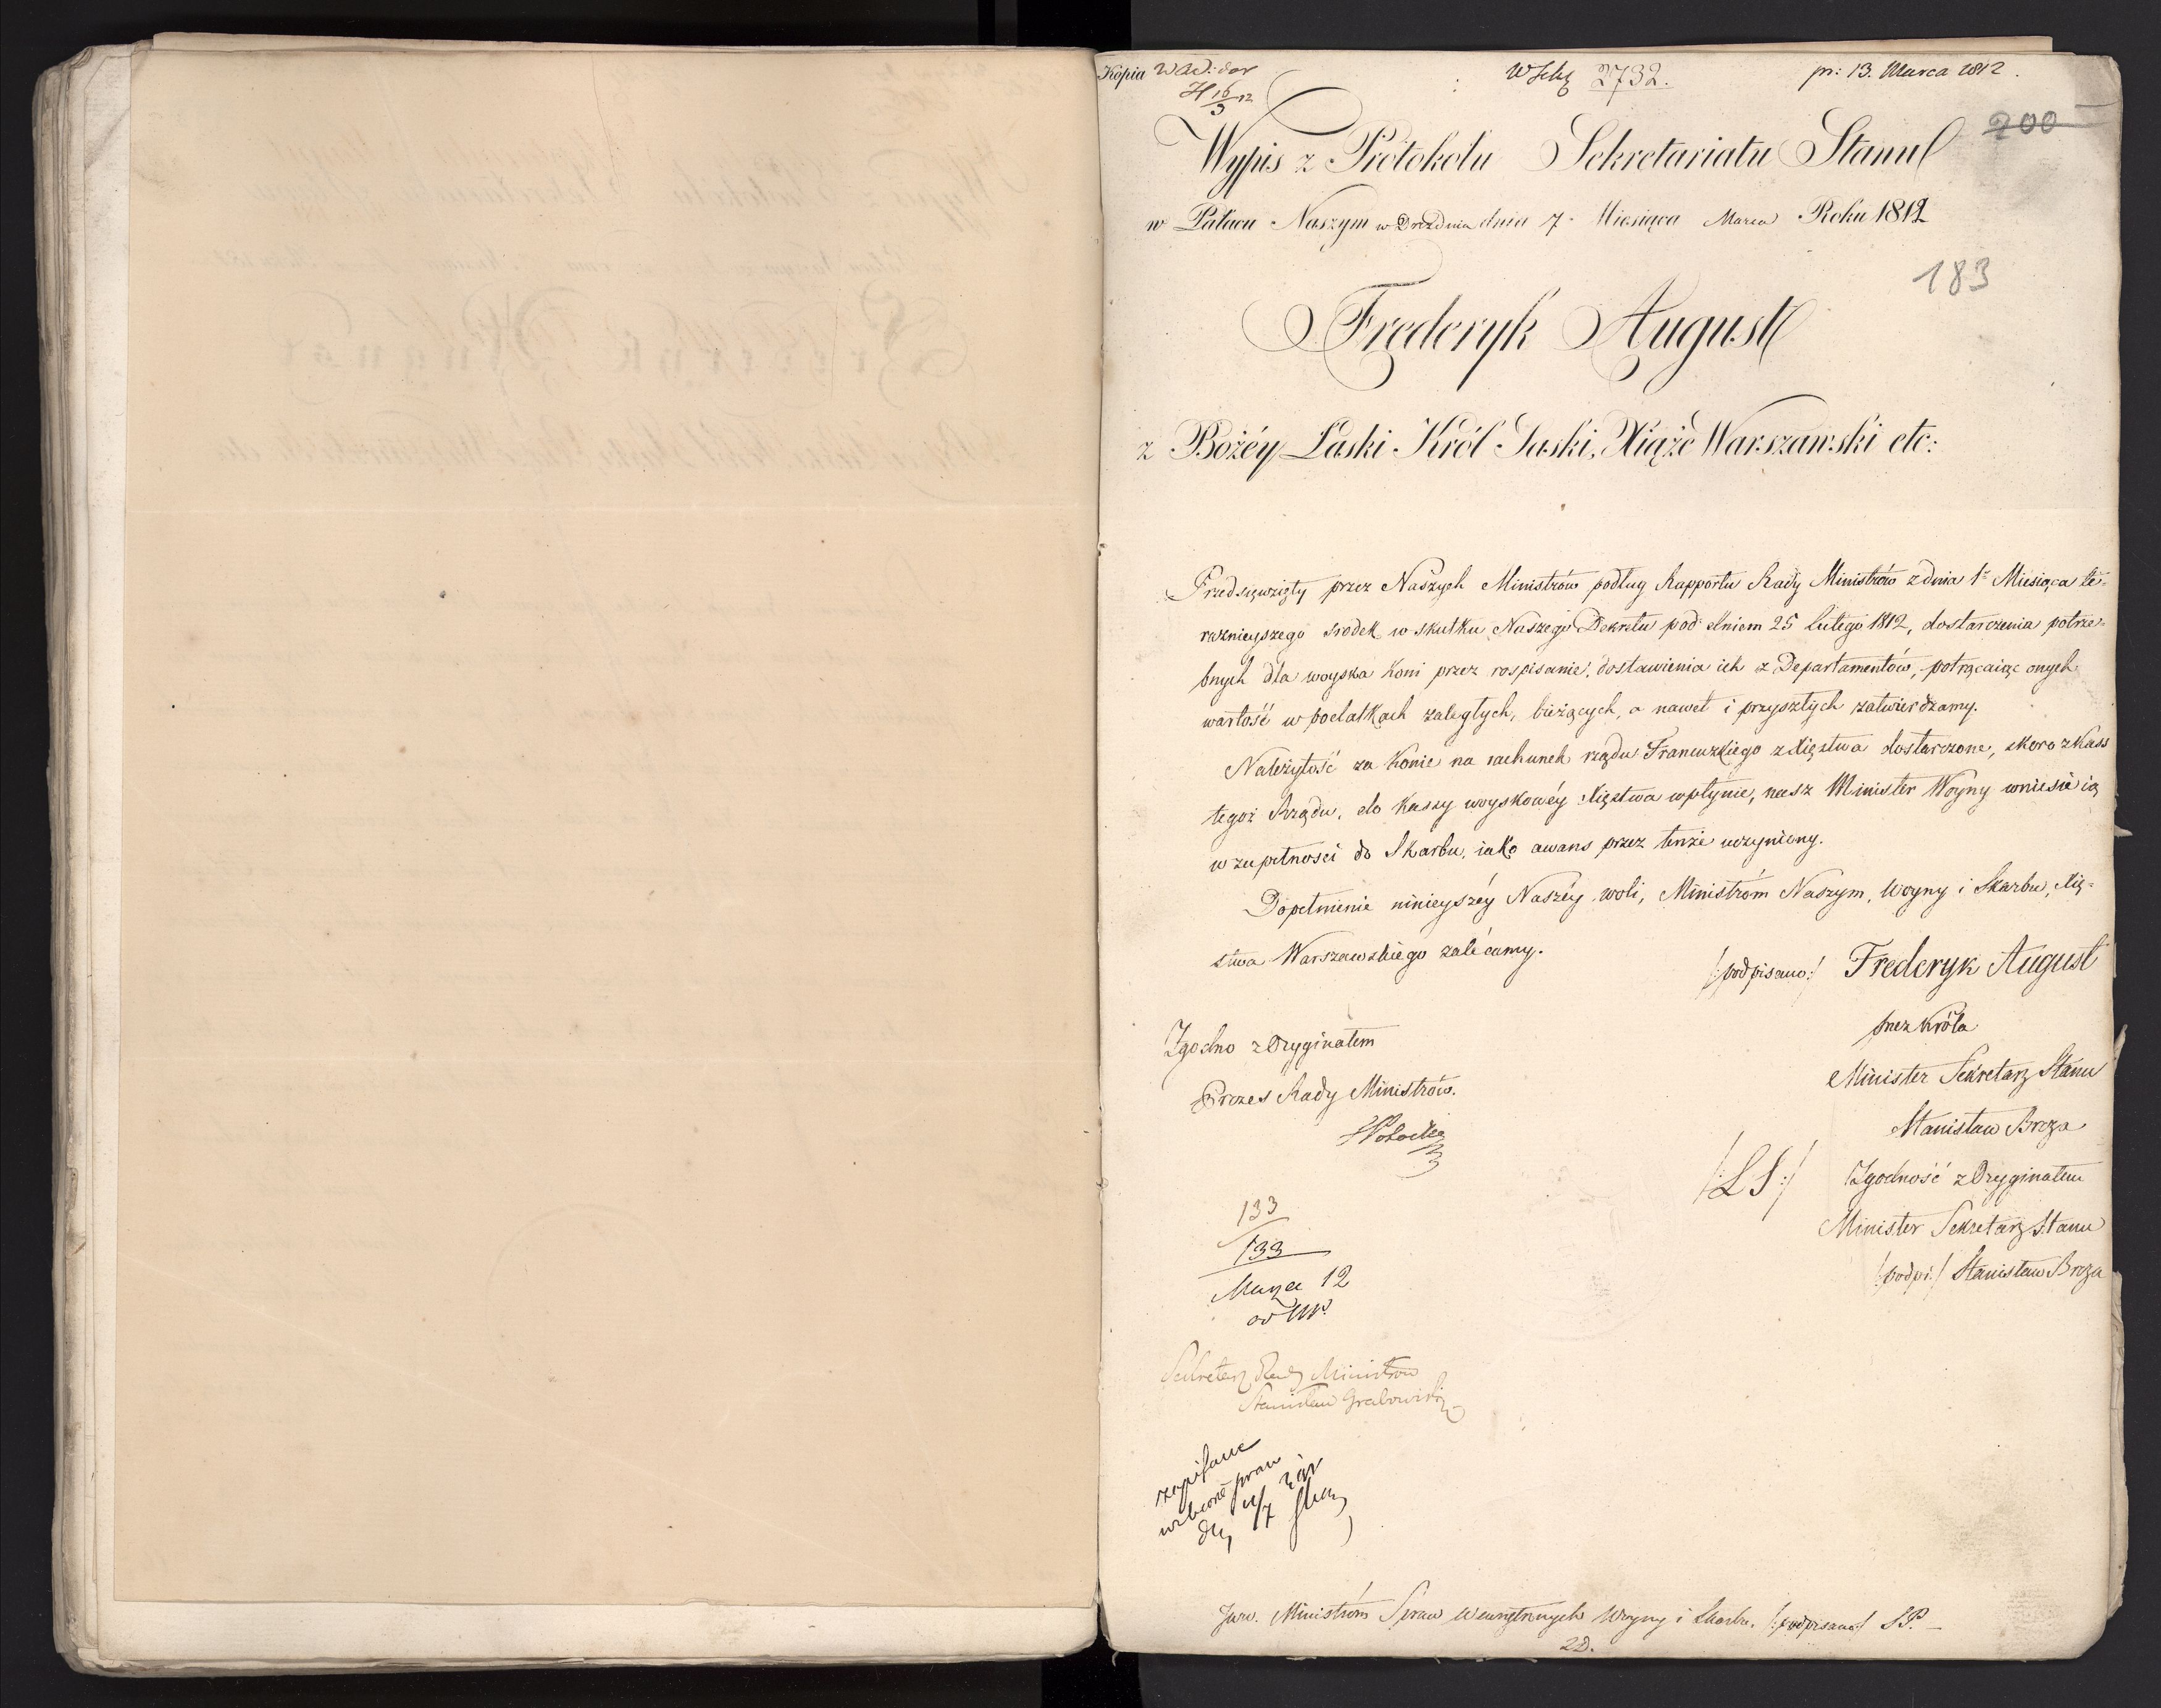 Kopia
2732.
pr: 13. Marca 1812.
200
Wypis z Protokołu Sekretariatu Stanu
w Pałacu Naszym w Dreźdnie dnia 7. Miesiąca Marca Roku 1812
183
Frederyk August
z Bożéy Łaski Król Saski, Xiąże Warszawski etc:
Przedsięwzięty przez Naszych Ministrów podług Rapportu Rady Ministrów z dnia 1º Miesiąca te-
raznieyszego srodek w skutku Naszego Dekretu pod dniem 25 Lutego 1812, dostarczenia potrze-
bnych dla woyska koni przez rospisanie, dostawienia ich z Departamentów, potrącaiąc onych
wartość w podatkach zaległych, bieżących, a nawet i przyszłych zatwierdzamy.
Należytość za konie na rachunek rządu Francuzkiego z Xięstwa dostarczone, skoro z Kass
tegoż Rządu, do Kassy woyskowéy Xięstwa wpłynie, nasz Minister Woyny wniesie ią
w zupełnosci do Skarbu, iako awans przez tenże uczyniony.
Dopełnienie ninieyszéy Naszéy woli, Ministróm Naszym, Woyny i Skarbu, Xię-
stwa Warszawskiego zalécamy.
/:podpisano:/ Frederyk August
przez Króla
Minister Sekretarz Stanu
Stanisław Breza
/:LS:/ Zgodność z Oryginałem
Minister Sekretarz Stanu
/:podpi:/ Stanisław Breza
Zgodno z Oryginałem
Prezes Rady Ministrów.
133
133
Marca 12
Sekretarz Rady Ministrow
Stanisław Grabowski
zapisane
Jww. Ministróm Spraw Wewnętrznych Woyny i Skarbu. /:podpisano:/ SP.